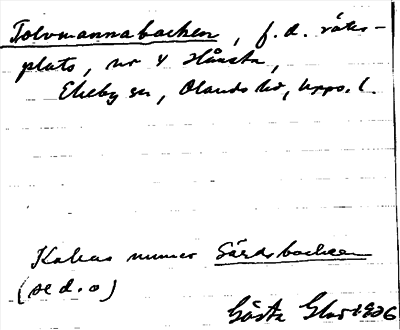 Tolvmannabacken, f.d. råtts-
plats, nr 4 Hånsta,
Ekeby sn, Olands hd, Upps. l.
Kallas numer Gårdsbacken
(se d. o)
Gösta 1926